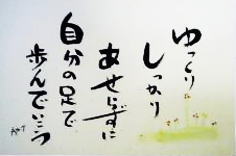 ゆっくり
しっかり
あせらずに
自分の足で
歩んでいこう